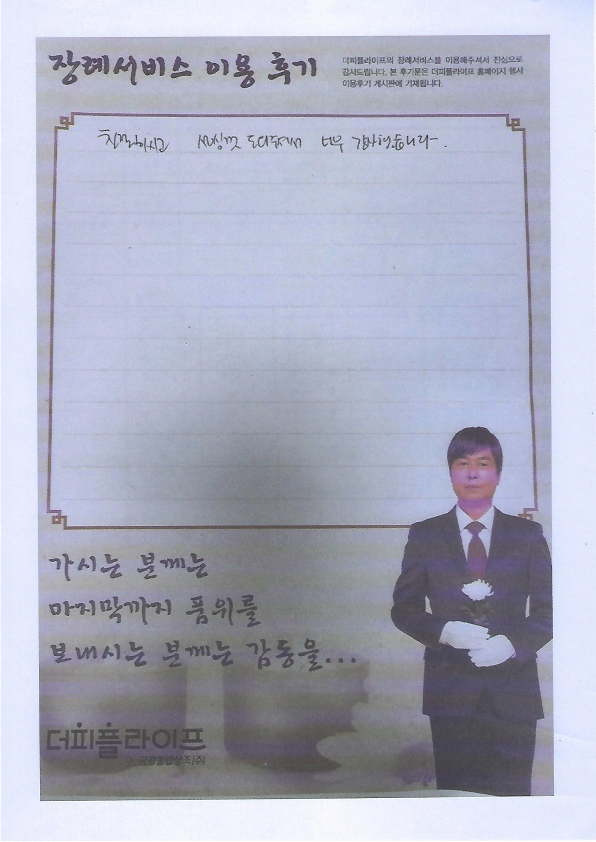 장례서비스 이용 후기
더피플라이프의 장례서비스를 이용해주셔서 진심으로
감사드립니다. 본 후기문은 더피플라이프 홈페이지 행사
이용후기 게시판에 기재됩니다.
친절하시고 성심껏 도와주셔서 너무 감사했습니다.
가시는 분께는
마지막까지 품위를
보내시는 분께는 감동을...
더피플라이프